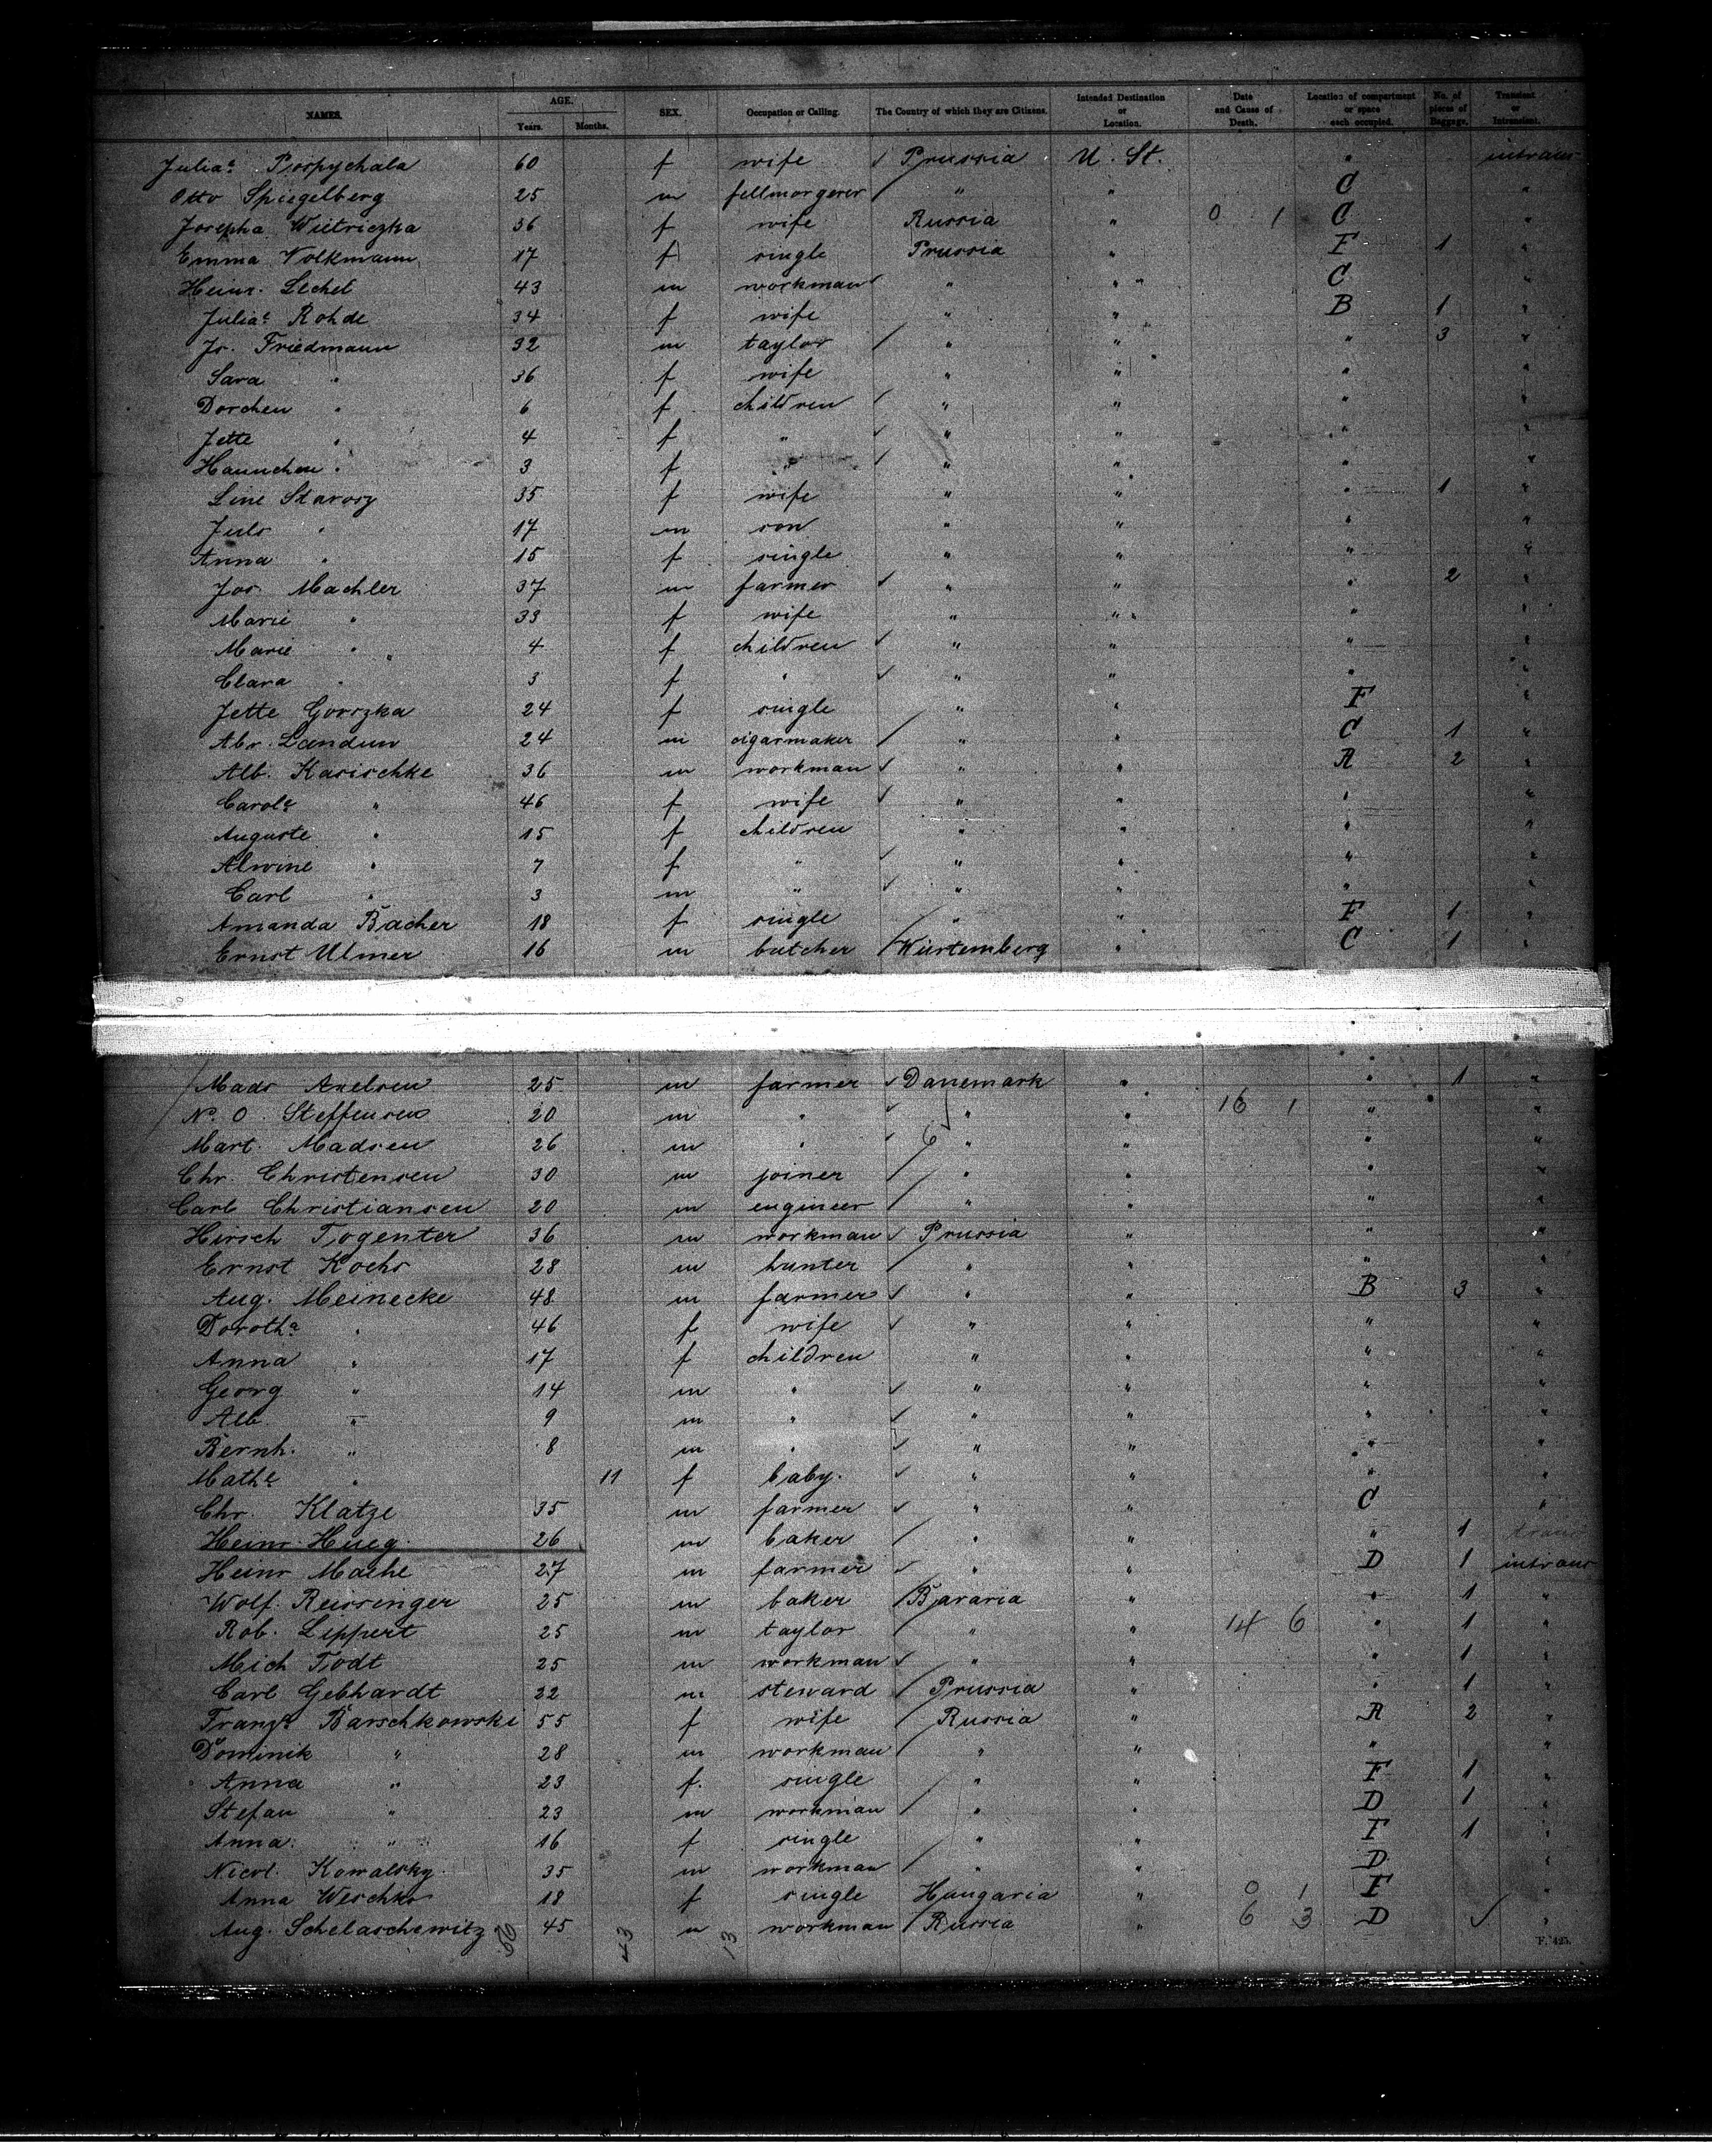 NAMES. AGE. Years. Months. SEX. Occupation or Calling. The Country of which they are Citizens. Intended Destination or Location. Date and Cause of Death. Location of compartment or space each occupied. No. of pieces of Baggage. Transient or Intransient.
Julia<sup>e</sup> Pospychala 60 f wife Prussia U. St. " intrans
Otto Spiegelberg 25 m fellmorgerer " " C "
Josepha Wietriczka 36 f wife Russia " 0 1 C "
Emma Volkmann 17 f single Prussia " F 1 "
Heinr. Lechel 43 m workman " " C "
Julia<sup>e</sup> Rohde 34 f wife " " B 1 "
Js. Friedmann 32 m taylor " " " 3 "
Sara " 36 f wife " " " "
Dorchen " 6 f children " " " "
Jette " 4 f " " " " "
Hannchen " 3 f " " " " "
Line Starosy 35 f wife " " " 1 "
Juls " 17 m son " " " "
Anna " 15 f single " " " "
Jos. Machler 37 m farmer " " " 2 "
Marie " 33 f wife " " " "
Marie " " 4 f children " " " "
Clara " 3 f " " " " "
Jette Gorszka 24 f single " " F "
Abr. Landun 24 m cigarmaker " " C 1 "
Alb. Karischke 36 m workman " " A 2 "
Carol<sup>e</sup> " 46 f wife " " " "
Auguste " 15 f children " " " "
Alwine " 7 f " " " " "
Carl " 3 m " " " " "
Amanda Bacher 18 f single " " F 1 "
Ernst Ulmer 16 m butcher Würtemberg " C 1 "
Mads Axelsen 25 m farmer Danemark " " 1 "
N. O. Steffensen 20 m " " " 16 1 " "
Mart. Madsen 26 m " 6 " " " "
Chr. Christensen 30 m joiner " " " "
Carl Christiansen 20 m engineer " " " "
Hirsch Togenter 36 m workman Prussia " " "
Ernst Kochs 28 m hunter " " " "
Aug. Meinecke 48 m farmer " " B 3 "
Doroth<sup>e</sup> " 46 f wife " " " "
Anna " 17 f children " " " "
Georg " 14 m " " " " "
Alb. " 9 m " " " " "
Bernh. " 8 m " " " " "
Math<sup>e</sup> " 11 f baby. " " " "
Chr. Klatze 35 m farmer " " C "
Heinr. Hueg. 26 m baker " " " 1 trans
Heinr Mathe 27 m farmer " " D 1 intrans
Wolf. Reissinger 25 m baker Bavaria " " 1 "
Rob. Lippert 25 m taylor " " 14 6 " 1 "
Mich Todt 25 m workman " " " 1 "
Carl Gebhardt 22 m steward Prussia " " 1 "
Franz<sup>a</sup> Barschkowski 55 f wife Russia " A 2 "
Dominik " 28 m workman " " " "
Anna " 23 f. single " " F 1 "
Stefan " 23 m workman " " D 1 "
Anna " 16 f single " " F 1 "
Nicol. Kowalsky 35 m workman " " D "
Anna Weschko 18 f single Hungaria " 0 1 F "
Aug. Schelaschewitz 45 m workman Russia " 6 3 D "
43 13
F. 425.